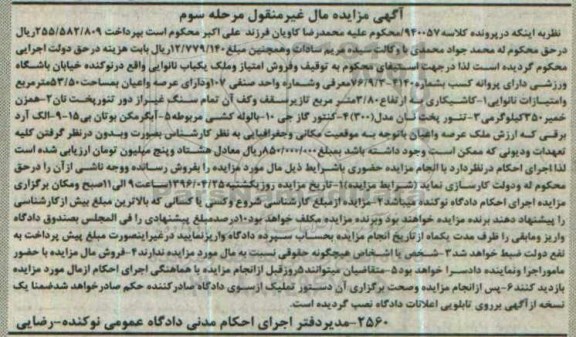 آگهی مزایده مال غیرمنقول مرحله سوم
نظربه اینکه درپرونده کلاسه ۹۴۰۰۵۷/محکوم علیه محمدرضا کاویان فرزند علی اکبر محکوم است بپرداخت ۲۵۵/۵۸۲/۸۰۹ریال
درحق محکوم له محمد جواد محمدی با وکالت سیده مریم سادات وهمچنین مبلغ ۱۲/۷۷۹/۱۴۰ریال بابت هزینه درحق دولت اجرایی
محکوم گردیده است لذا درجهت استیفای محکوم به توقیف وفروش امتیاز وملک یکباب نانوایی واقع درنوکنده خیابان باشگاه
ورزشی دارای پروانه کسب بشماره ۴۱۲۰-۷۶/۹/۳معرفی وشماره واحد صنفی ۱۰۷ودارای عرصه واعیان بمساحت ۵۳/۵۰مترمربع
وامتیازات نانوایی۱-کاشیکاری به ارتفاع ۳/۸۰متر مربع تازیرسقف وکف آن تمام سنگ غیراز دور تنورپخت نان۲-همزن
خمیر۳۵۰کیلوگرمی۳-تنور پخت نان مدل(۳۰۰)۴-کنتور گاز جی ۱۰-بالوله کشی مربوطه۵-آبگرمکن بوتان بی۱۵-۹-الک آرد
برقی که ارزش ملک عرصه واعیان باتوجه به موقعیت مکانی وجغرافیایی به نظر کارشناس بصورت وبدون درنظر گرفتن کلیه
تعهدات ودیونی که ممکن است وجود داشته باشد بمبلغ ۸۵۰/۰۰۰/۰۰۰ریال معادل هشتاد وپنج میلیون تومان ارزیابی شده است
لذا اجرای احکام درنظردارد با انجام مزایده حضوری باشرایط ذیل مال مورد مزایده را بفروش رسانده ووجه ناشی ازآن را درحق
محکوم له ودولت کارسازی نماید (شرایط مزایده)۱-تاریخ مزایده روزیکشنبه ۱۳۹۶/۰۴/۲۵ساعت ۹ الی۱۱صبح ومکان برگزاری
مزایده اجرای احکام دادگاه نوکنده میباشد۲-مزایده ازمبلغ کارشناسی شروع وکسی یا کسانی که بالاترین مبلغ بیش ازکارشناسی
را پیشنهاد دهند برنده مزایده خواهند بود وبرنده مزایده مکلف خواهد بود۱۰درصدمبلغ پیشنهادی را فی المجلس بصندوق دادگاه
واریز ومابقی را ظرف مدت یکماه ازتاریخ انجام مزایده بحساب سپرده دادگاه واریزنمایید درغیراینصورت مبلغ پیش پرداخت به
نفع دولت ضبط خواهد شد۳-شخص یا اشخاص هیچگونه حقوقی نسبت به مال مورد مزایده ندارند۴-فروش مال مزایده با حضور
ماموراجرا ونماینده دادسرا خواهد بود۵-متقاضیان میتوانند۵روزقبل ازانجام مزایده با هماهنگی اجرای احکام ازمال مورد مزایده
بازدید کنند۶-پس ازانجام مزایده وصحت برگزاری آن دستور تملیک ازسوی دادگاه صادرکننده حکم صادرخواهد شدضمنا یک
نسخه ازآگهی برروی تابلویی اعلانات دادگاه نصب گردیده است.
۲۵۶۰-مدیردفتر اجرای احکام مدنی دادگاه عمومی نوکنده-رضایی